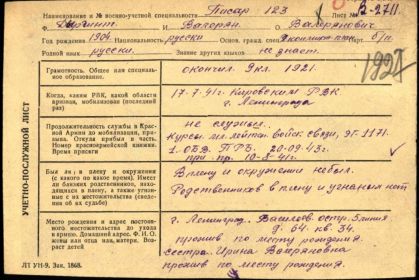 Наименование и № военно-учетной специальность Писарь 123 Лист № В-2711
Ф. И. О. Валерян Валерянович
Год рождения 1904. Национальность русский Основ. гражд. спец. б/п.
Родной язык русский. Знание других языков не знает.
1927
УЧЕТНО-ПОСЛУЖНОЙ ЛИСТ
Грамотность. Общее или специальное образование. окончил 9 кл. 1921.
Когда, каким РВК, какой области призван, мобилизован (последний раз) 17-7-41г. Кировским РВК.
г. Ленинграда
Продолжительность службы в Красной Армии до мобилизации, призыва. Откуда прибыл в часть. Номер красноармейской книжки. Время присяги не служил.
Курсы мл. лейт. войск связи, ЭГ. 1171.
1-ОБВ ПРБ. 20-09-43г.
при-пр. 10-8-41г.
Был ли: в плену и окружении (с какого по какое время). Имеет ли близких родственников, находящихся в плену, а также угнанных с их местожительства (сведения об их судьбе) В плену и окружении не был.
Родственников в плену и угнаных нет
Место рождения и адрес постоянного местожительства до ухода в армию. Домашний адрес. Ф. И. О. жены или отца или матери. Возраст детей г. Ленинград. Васильев. остр. 5 линия
д. 64. кв. 34.
прожив по месту рождения.
сестра. Ирина Валеряновна
прожив по месту рождения.
ЛТ УН-9. Зак. 1868.